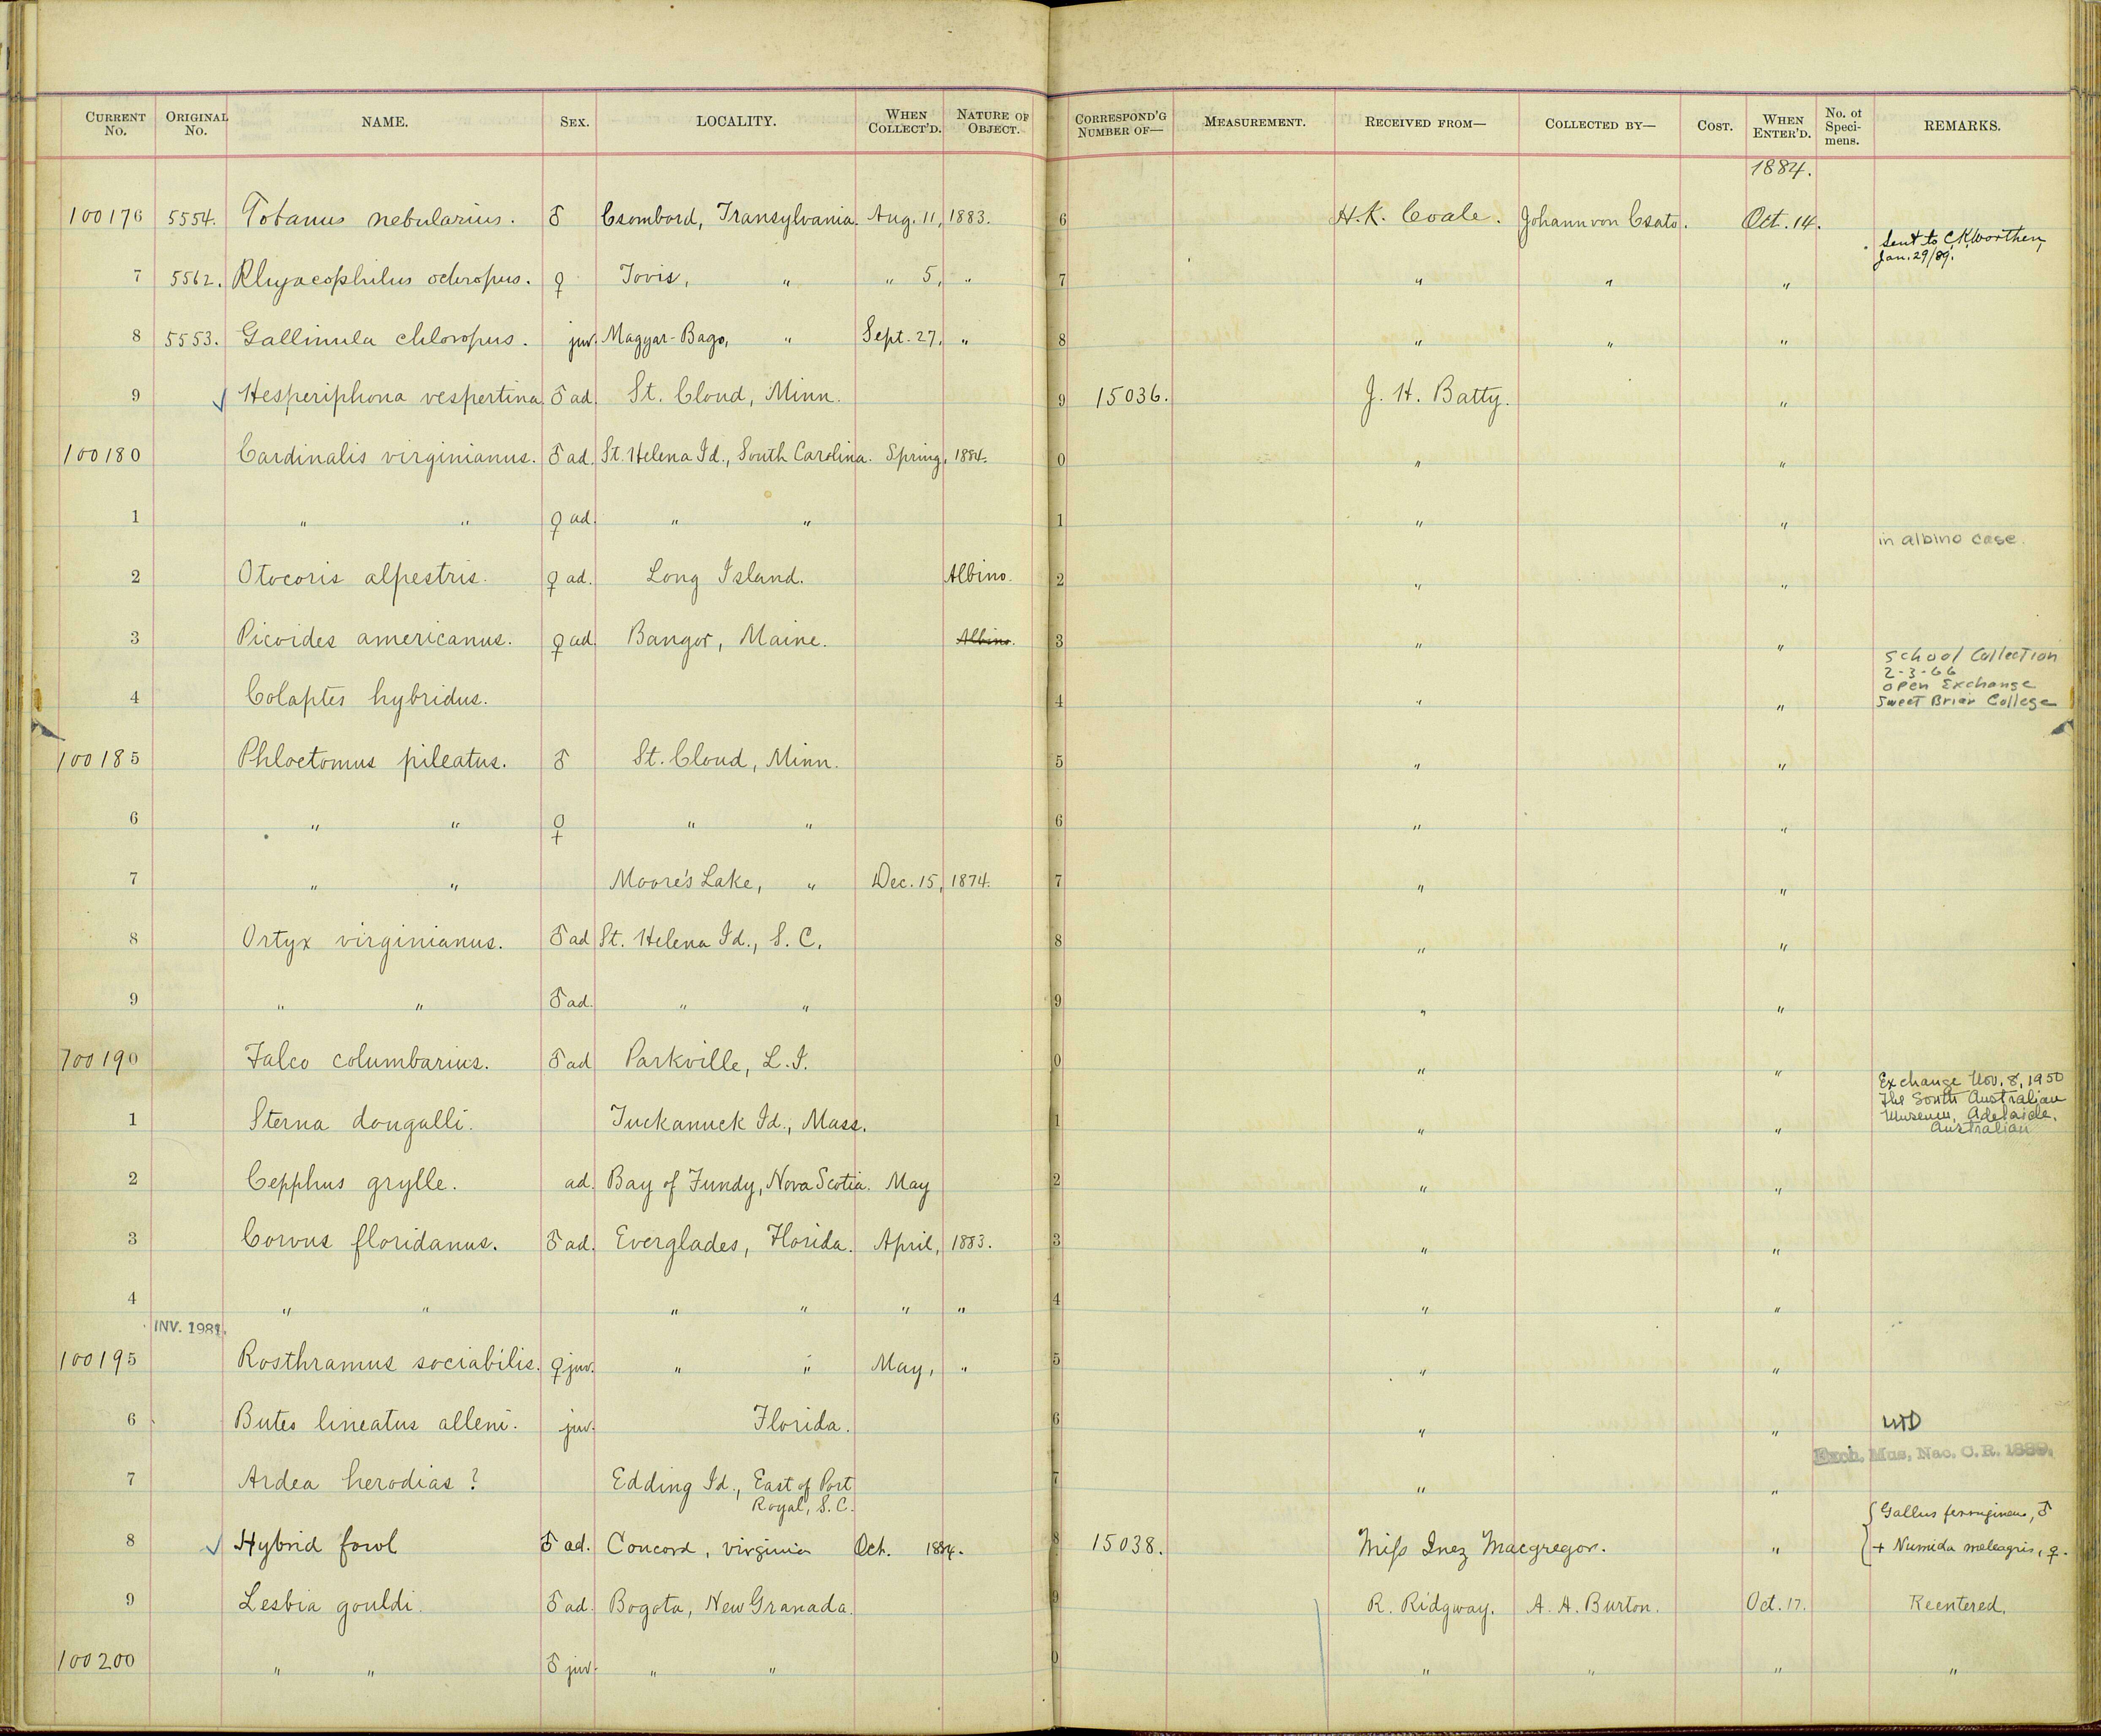 CURRENT No. ORIGINAL No. NAME. SEX. LOCALITY. WHEN COLLECT'D. NATURE OF OBJECT. CORRESPOND'G NUMBER OF— MEASUREMENT. RECEIVED FROM— COLLECTED BY— COST. WHEN ENTER'D. No. of Specimens. REMARKS.
1884.
100176 5554. Totanus nebularius. ♂ Csombord, Transylvania. Aug. 11, 1883. 6 H.K. Coale. Johann von Csato. Oct. 14.
Sent to C.K. Worthen,
Jan. 29/89.
7 5562. Rhyacophilus ochropus. ♀ Tovis, " " 5, " 7 " " "
8 5553. Gallinula chloropus. juv. Magyar-Bago, " Sept. 27, " 8 " " "
9 ✓ Hesperiphona vespertina ♂ ad. St. Cloud, Minn. 9 15036. J. H. Batty. "
100180 Cardinalis virginianus. ♂ ad. St. Helena Id., South Carolina. Spring, 1884. 0 " "
1 " " ♀ ad. " " 1 " "
in albino case.
2 Otocoris alpestris. ♀ ad. Long Island. Albino. 2 " "
3 Picoides americanus. ♀ ad. Bangor, Maine. Albino. 3 " "
School Collection
2-3-66
open Exchange
Sweet Briar College
4 Colaptes hybridus. 4 " "
100185 Phloetomus pileatus. ♂ St. Cloud, Minn. 5 " "
6 " " ♀ " " 6 " "
7 " " Moore's Lake, " Dec. 15, 1874. 7 " "
8 Ortyx virginianus. ♂ ad St. Helena Id., S. C. 8 " "
9 " " ♂ ad. " " 9 " "
100190 Falco columbarius. ♂ ad Parkville, L. I. 0 " "
Exchange Nov. 8, 1950
The South Australian
Museum, Adelaide,
Australian
1 Sterna dougalli. Tuckanuck Id., Mass. 1 " "
2 Cepphus grylle. ad. Bay of Fundy, Nova Scotia. May 2 " "
3 Corvus floridanus. ♂ ad. Everglades, Florida. April, 1883. 3 " "
4 " " " " " " 4 " "
INV. 1981.
100195 Rosthramus sociabilis. ♀ juv. " " May, " 5 " "
6 Buteo lineatus alleni. juv. Florida. 6 " "
Exch. Mus. Nac. C.R. 1889.
7 Ardea herodias? Edding Id., East of Port
Royal, S. C. 7 " "
{ Gallus ferrugineus, ♂
8 ✓ Hybrid fowl ♂ ad. Concord, virginia Oct. 1884. 8 15038. Miss Inez Macgregor. " + Numida meleagris, ♀.
9 Lesbia gouldi. ♂ ad. Bogota, New Granada. 9 R. Ridgway. A. H. Burton. Oct. 17. Reentered.
100200 " " ♂ juv. " " 0 " " " "